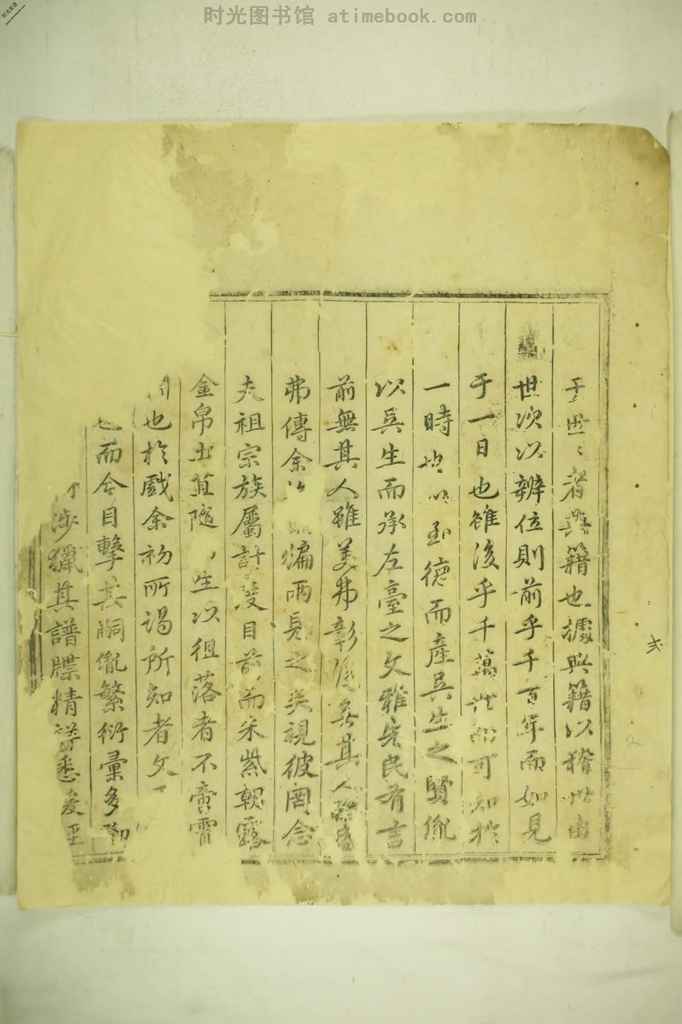 时光图书馆 atimebook.com
于世〻者典籍也據典籍以稽世由
世次以辨位則前乎千百年而如見
于一日也雖後乎千萬世而可知於
一時 德而產吳生之賢胤
以吳生而承左臺之文雅先民有言
前無其人雖美弗彰後無其人雖盛
弗傳余 編而見之矣視彼罔念
先祖宗族屬許 目前而朱紫朝露
金帛土苴隨 生以徂落者不啻霄
也於戲余初所謁所知者文
也而今目擊其嗣胤繁衍彙多
涉獵其譜牒精詳悉
弍